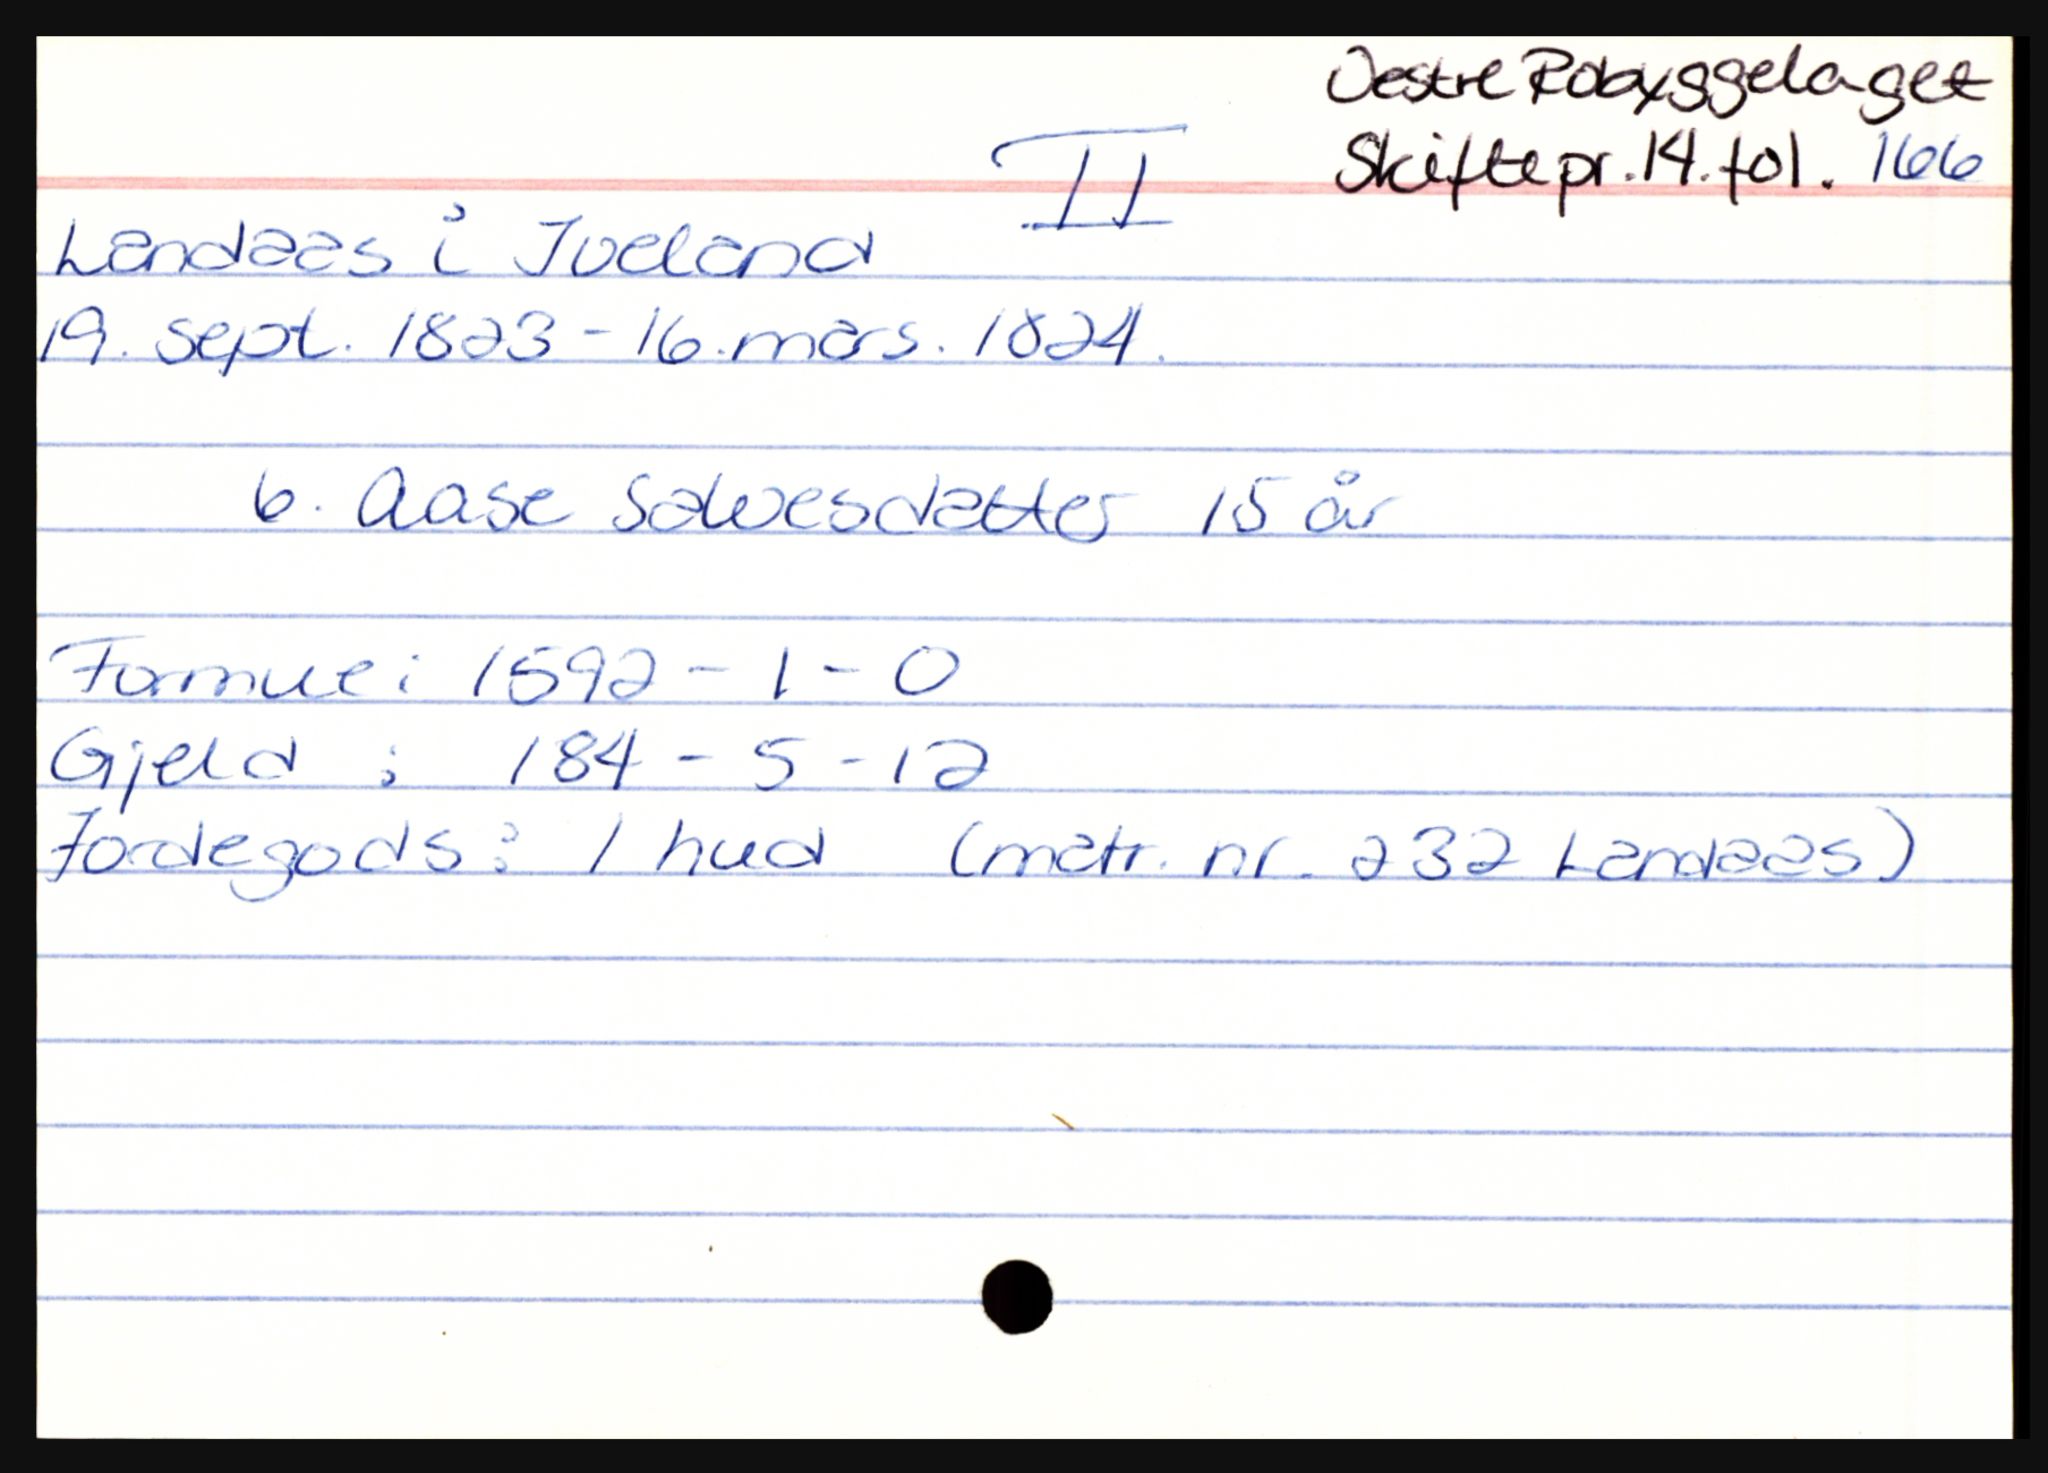 Vestre Robyggelaget
Skiftepr. 14. fol. 166
II
Landaas i Iveland
19. sept. 1823 - 16. mars. 1824.
6. Aase Salvesdatter 15 år
Formue: 1592 - 1 - 0
Gjeld : 184 - 5 - 12
Jordegods: 1 hud (matr. nr. 232 Landaas)